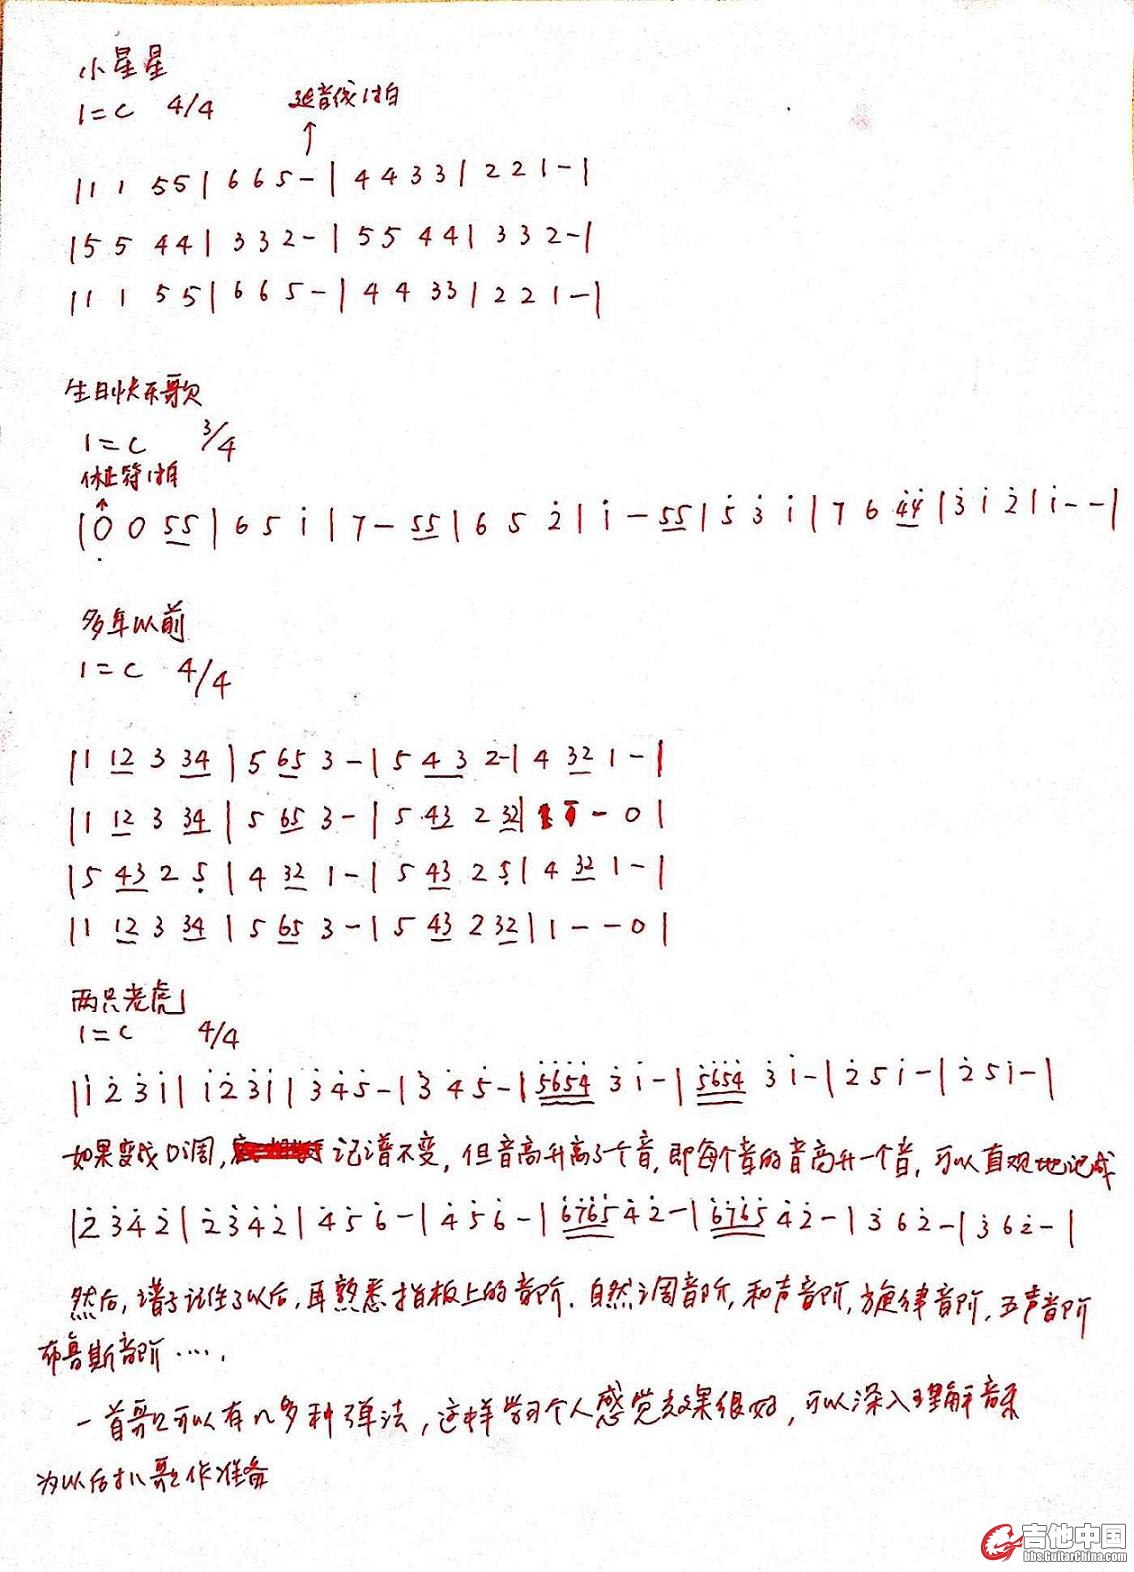 小星星
1=C 4/4 延音线1拍
↑
|1 1 5 5 | 6 6 5 - | 4 4 3 3 | 2 2 1 - |
|5 5 4 4 | 3 3 2 - | 5 5 4 4 | 3 3 2 - |
|1 1 5 5 | 6 6 5 - | 4 4 3 3 | 2 2 1 - |
生日快乐歌
1=C 3/4
休止符1拍
↑
|0 0 5̲5̲ | 6 5 i | 7 - 5̲5̲ | 6 5 2̇ | i - 5̲5̲ | 5̇ 3̇ i | 7 6 4̲̇4̲̇ | 3̇ i 2̇ | i - - |
多年以前
1=C 4/4
|1 1̲2̲ 3 3̲4̲ | 5 6̲5̲ 3 - | 5 4̲3̲ 2 - | 4 3̲2̲ 1 - |
|1 1̲2̲ 3 3̲4̲ | 5 6̲5̲ 3 - | 5 4̲3̲ 2 3̲2̲ | 1 - - 0 |
|5 4̲3̲ 2 5̣ | 4 3̲2̲ 1 - | 5 4̲3̲ 2 5̣ | 4 3̲2̲ 1 - |
|1 1̲2̲ 3 3̲4̲ | 5 6̲5̲ 3 - | 5 4̲3̲ 2 3̲2̲ | 1 - - 0 |
两只老虎
1=C 4/4
|i 2̇ 3̇ i | i 2̇ 3̇ i | 3̇ 4̇ 5̇ - | 3̇ 4̇ 5̇ - | 5̳̇6̳̇5̳̇4̳̇ 3̇ i - | 5̳̇6̳̇5̳̇4̳̇ 3̇ i - | 2̇ 5 i - | 2̇ 5 i - |
如果变成D调, 记谱不变, 但音高升高了个音, 即每个音的音高升一个音, 可以直观地记成
|2̇ 3̇ 4̇ 2̇ | 2̇ 3̇ 4̇ 2̇ | 4̇ 5̇ 6̇ - | 4̇ 5̇ 6̇ - | 6̳̇7̳̇6̳̇5̳̇ 4̇ 2̇ - | 6̳̇7̳̇6̳̇5̳̇ 4̇ 2̇ - | 3̇ 6 2̇ - | 3̇ 6 2̇ - |
然后, 谱子记住了以后, 再熟悉指板上的音阶. 自然调音阶, 和声音阶, 旋律音阶, 五声音阶
布鲁斯音阶 ·····.
一首歌可以有几多种弹法, 这样学习个人感觉效果很好, 可以深入理解音乐
为以后扒歌作准备
吉他中国
bbs.GuitarChina.com